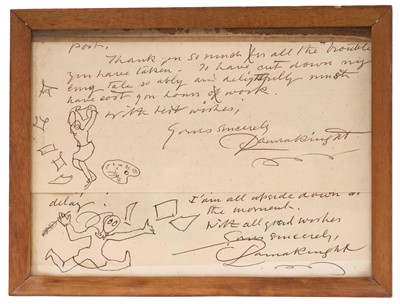 post.
Thank you so much for all the trouble
you have taken - To have cut down my
long tale so ably and delightfully must
have cost you hours of work.
With best wishes,
Yours sincerely
Laura Knight
delay!
I am all upside down at
the moment.
With all good wishes
Yours sincerely,
Laura Knight